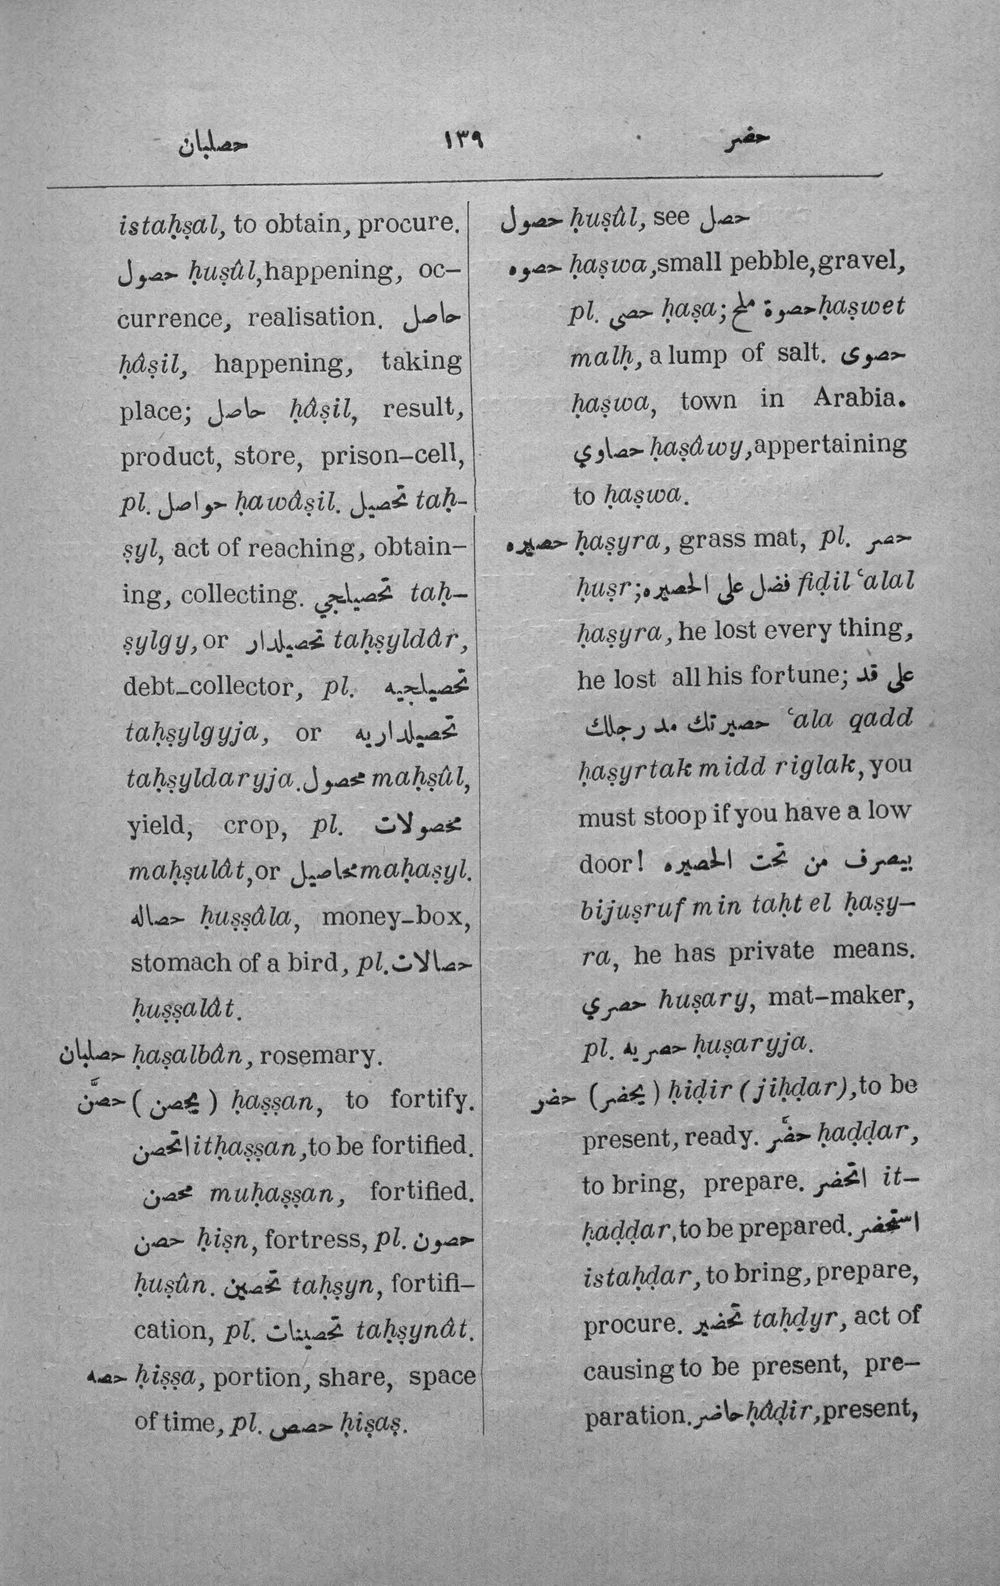 حصلبان ١٣٩ حضر
istaḥṣal, to obtain, procure.
حصول ḥuṣûl, happening, oc-
currence, realisation. حاصل
ḥâṣil, happening, taking
place; حاصل ḥâṣil, result,
product, store, prison-cell,
pl. حواصل ḥawâṣil. تحصيل taḥ-
ṣyl, act of reaching, obtain-
ing, collecting. تحصيلجي taḥ-
ṣylgy, or تحصيلدار taḥṣyldâr,
debt-collector, pl. تحصيلجيه
taḥṣylgyja, or تحصيلداريه
taḥṣyldaryja. محصول maḥṣûl,
yield, crop, pl. محصولات
maḥṣulât, or محاصيل maḥaṣyl.
حصاله ḥuṣṣâla, money-box,
stomach of a bird, pl. حصالات
ḥuṣṣalât.
حصلبان ḥaṣalbân, rosemary.
حصّن (يحصن) ḥaṣṣan, to fortify.
اتحصن itḥaṣṣan, to be fortified.
محصن muḥaṣṣan, fortified.
حصن ḥiṣn, fortress, pl. حصون
ḥuṣûn. تحصين taḥṣyn, fortifi-
cation, pl. تحصينات taḥṣynât.
حصه ḥiṣṣa, portion, share, space
of time, pl. حصص ḥiṣaṣ.
حصول ḥuṣûl, see حصل
حصوه ḥaṣwa, small pebble, gravel,
pl. حصى ḥaṣa; حصوة ملح ḥaṣwet
malḥ, a lump of salt. حصوى
ḥaṣwa, town in Arabia.
حصاوي ḥaṣâwy, appertaining
to ḥaṣwa.
حصيره ḥaṣyra, grass mat, pl. حصر
ḥuṣr; فضل على الحصيره fiḍil ‘alal
ḥaṣyra, he lost every thing,
he lost all his fortune; على قد
حصيرتك مد رجلك ‘ala qadd
ḥaṣyrtak midd riglak, you
must stoop if you have a low
door! بيصرف من تحت الحصيره
bijuṣruf min taḥt el ḥaṣy-
ra, he has private means.
حصري ḥuṣary, mat-maker,
pl. حصريه ḥuṣaryja.
حضر (يحضر) ḥiḍir (jiḥḍar), to be
present, ready. حضّر ḥaḍḍar,
to bring, prepare. اتحضر it-
ḥaḍḍar, to be prepared. استحضر
istaḥḍar, to bring, prepare,
procure. تحضير taḥḍyr, act of
causing to be present, pre-
paration. حاضر ḥâḍir, present,